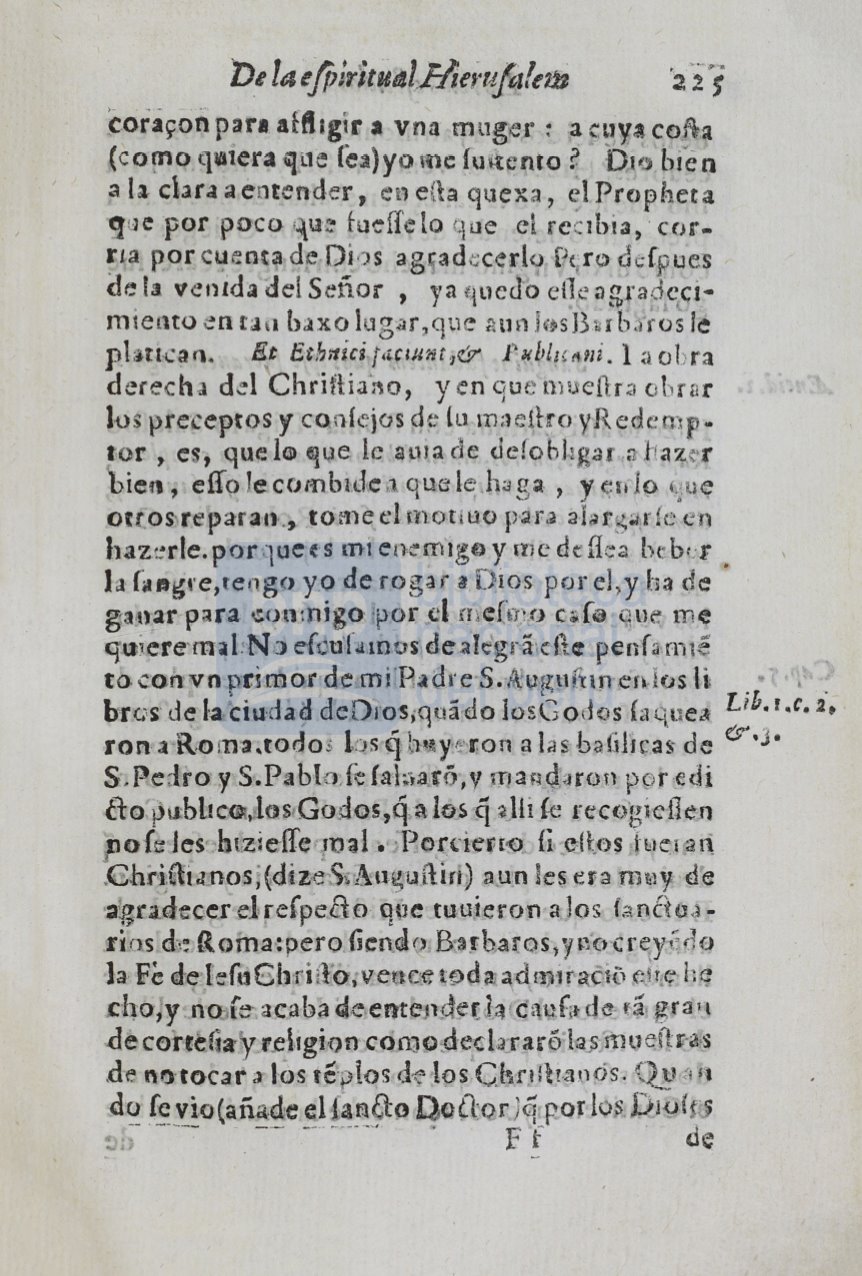 De la eſpiritual Hieruſalem 225
coraçon para affligir a vna muger : a cuya coſta
(como quiera que ſea) yo me ſuſtento ? Dio bien
a la clara a entender, en eſta quexa, el Propheta
que por poco que fueſſe lo que el recibia, cor-
ria por cuenta de Dios agradecerlo Pero deſpues
de la venida del Señor , ya quedo eſſe agradeci-
miento en tan baxo lugar, que aun los Barbaros le
platican. Et Ethnici faciunt, & Publicani. la obra
derecha del Chriſtiano, y en que mueſtra obrar
los preceptos y conſejos de ſu maeſtro y Redemp-
tor , es, que lo que le auia de deſobligar a hazer
bien, eſſo le combide a que le haga , y en lo que
otros reparan, tome el motiuo para alargarſe en
hazerle. porque es mi enemigo y me deſſea beber
la ſangre, tengo yo de rogar a Dios por el, y ha de
ganar para conmigo por el meſmo caſo que me
quiere mal No eſcuſamos de alegrã eſte penſamiẽ
to con vn primor de mi Padre S. Auguſtin en los li
bros de la ciudad de Dios, quãdo los Godos ſaquea
ron a Roma. todos los q̃ huyeron a las baſilicas de
S. Pedro y S. Pablo ſe ſaluarõ, y mandaron por edi
cto publico, los Godos, q̃ a los q̃ alli ſe recogieſſen
no ſe les hizieſſe mal . Porcierto ſi eſtos fueran
Chriſtianos, (dize S. Auguſtin) aun les era muy de
agradecer el reſpecto que tuuieron a los ſanctua-
rios de Roma: pero ſiendo Barbaros, y no creyẽdo
la Fè de Ieſu Chriſto, vence toda admiraciõ eſte he
cho, y no ſe acaba de entender la cauſa de tã gran
de corteſia y religion como declararõ las mueſtras
de no tocar a los tẽplos de los Chriſtianos. Quan
do ſe vio (añade el ſancto Doctor) q̃ por los Dioſes
Ff de
Lib. 1. c. 2.
&. 3.